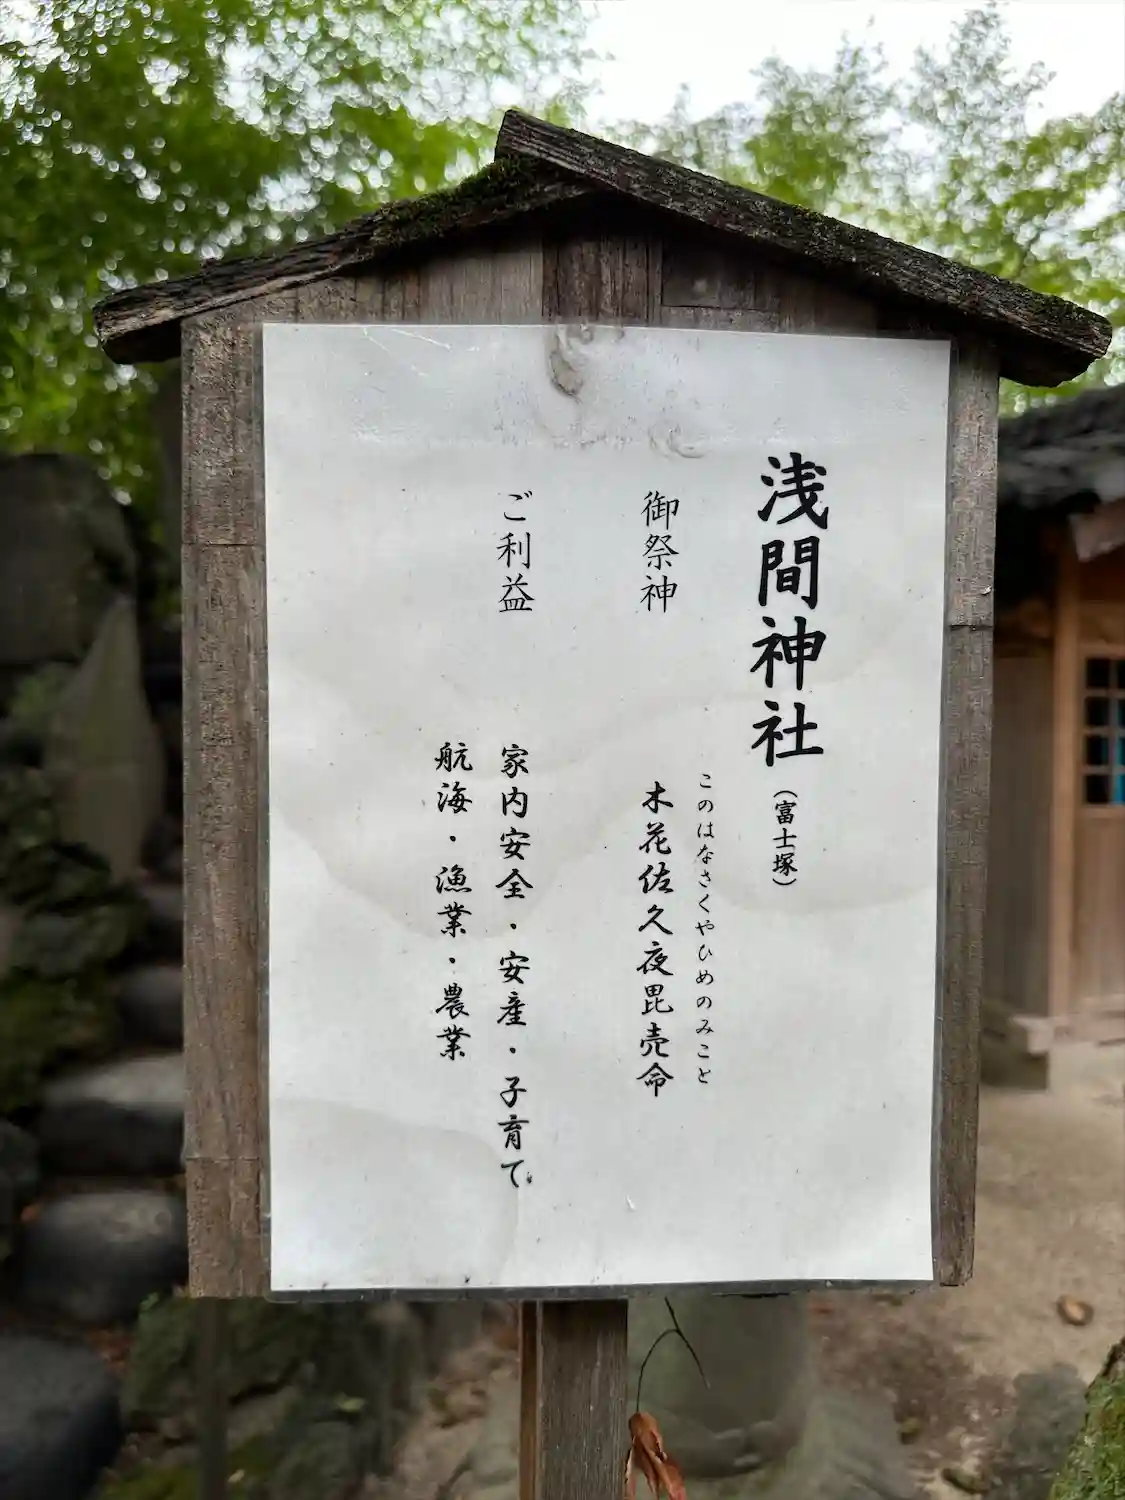 浅間神社(富士塚)
このはなさくやひめのみこと
御祭神 木花佐久夜毘売命
ご利益 家内安全・安産・子育て
航海・漁業・農業